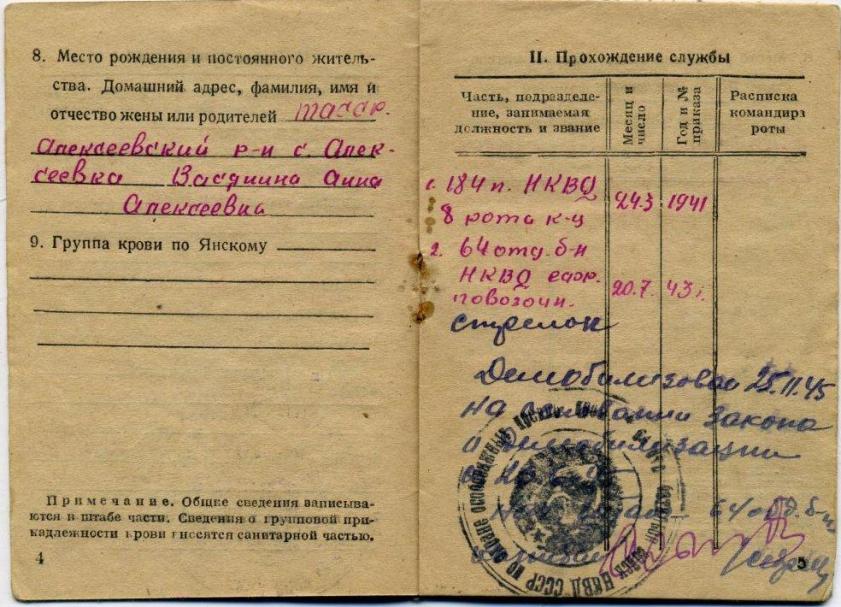 8. Место рождения и постоянного житель-
ства. Домашний адрес, фамилия, имя и
отчество жены или родителей
Алексеевский р-н с. Алек-
сеевка Анна
Алексеевна
9. Группа крови по Янскому
Примечание. Общие сведения записыва-
ются в штабе части. Сведения о групповой при-
надлежности крови вносятся санитарной частью.
4
II. Прохождение службы
Часть, подразделе-
ние, занимаемая
должность и звание
Месяц и
число
Год и №
приказа
Расписка
командира
роты
1. 184 п. НКВД 24.3 1941
8 рота к-ц
2. 64 отд. б-н
НКВД
повозочн. 20.7. 43 г.
стрелок
Демобилизован 25.11.45
на основании закона
о демобилизации
64 отд. б-на
НКВД СССР по охране особо важных
5